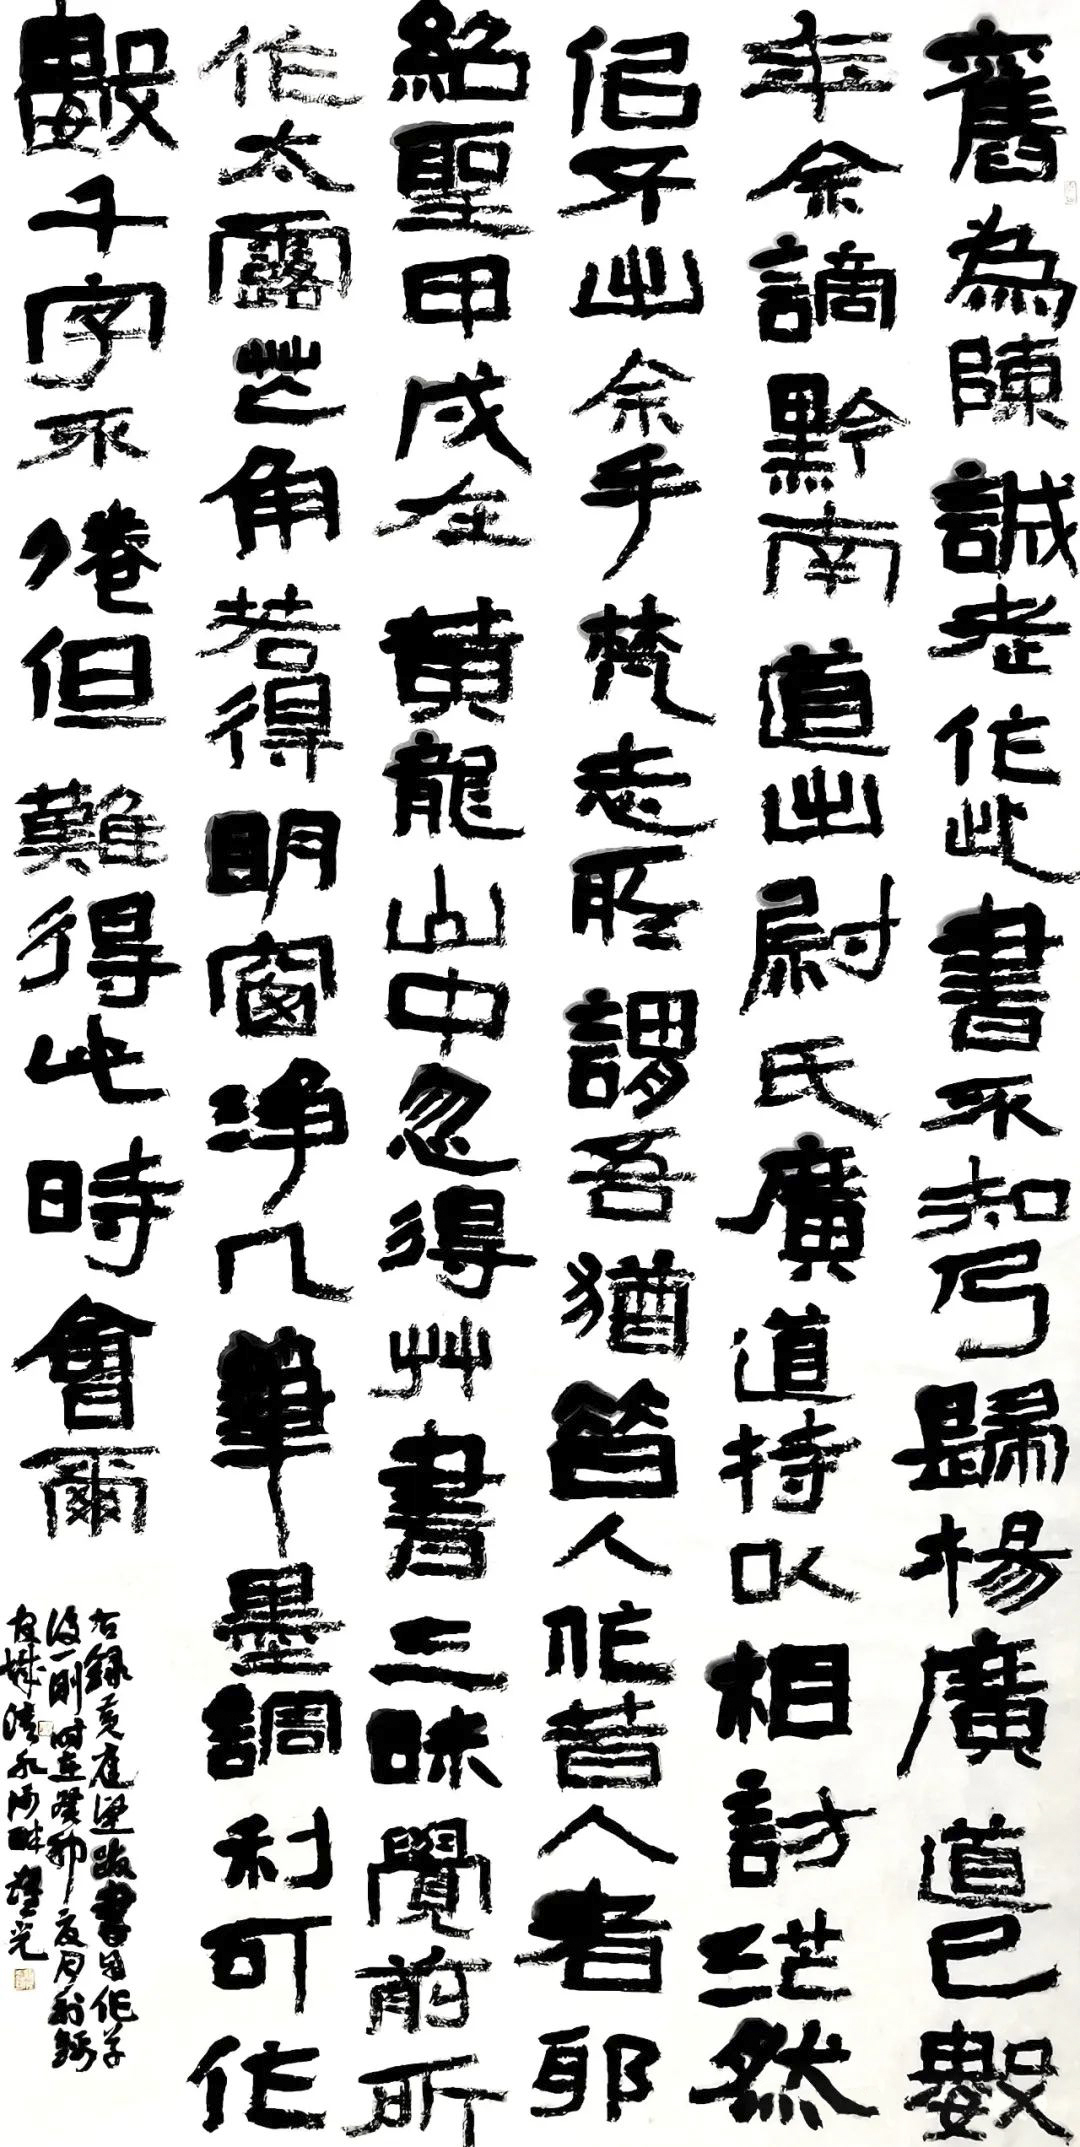 舊為陳誠老作此書不知乃歸楊廣道已數
年余謫黔南道出尉氏廣道持以相訪茫然
佀不出余手梵志所謂吾猶昔人非昔人者耶
紹聖甲戌在黃龍山中忽得艸書三昧覺前所
作太露芒角若得明窗净几筆墨調利可作
數千字不倦但難得此時會爾
右錄黃庭堅跋書自作草
後一則時在癸卯夏月於
城清水河畔光